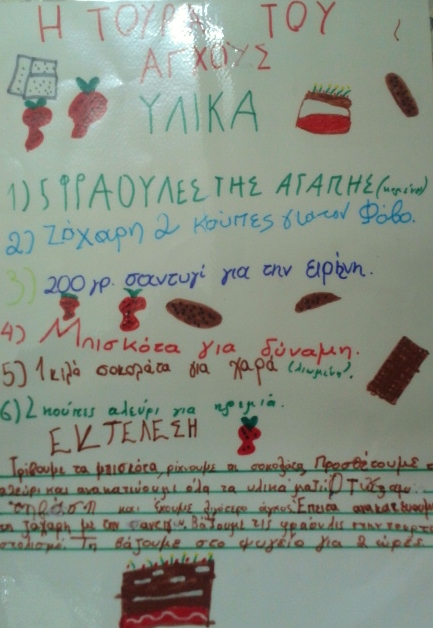 Η ΤΟΥΡΤΑ ΤΟΥ
ΑΓΧΟΥΣ
ΥΛΙΚΑ
1) 5 ΦΡΑΟΥΛΕΣ ΤΗΣ ΑΓΑΠΗΣ
2) Ζάχαρη 2 κούπες για τον Φόβο.
3) 200 γρ. σαντυγί για την ειρήνη.
4) Μπισκότα για δύναμη.
5) 1 κιλό σοκολάτα για χαρά (λιωμένη).
6) 2 κούπες αλεύρι για ηρεμιά.
ΕΚΤΕΛΕΣΗ
Τρίβουμε τα μπισκότα, ρίχνουμε τη σοκολάτα. Προσθέτουμε
αλεύρι και ανακατεύουμε όλα τα υλικά μαζί
και έχουμε λιγότερο άγχος. Επειτα ανακατεύουμε
τη ζάχαρη με την σαντιγύ. Βάζουμε τις φράουλες στην τούρτα
στολισμό. Τη βάζουμε στο ψυγείο για 2 ώρες.